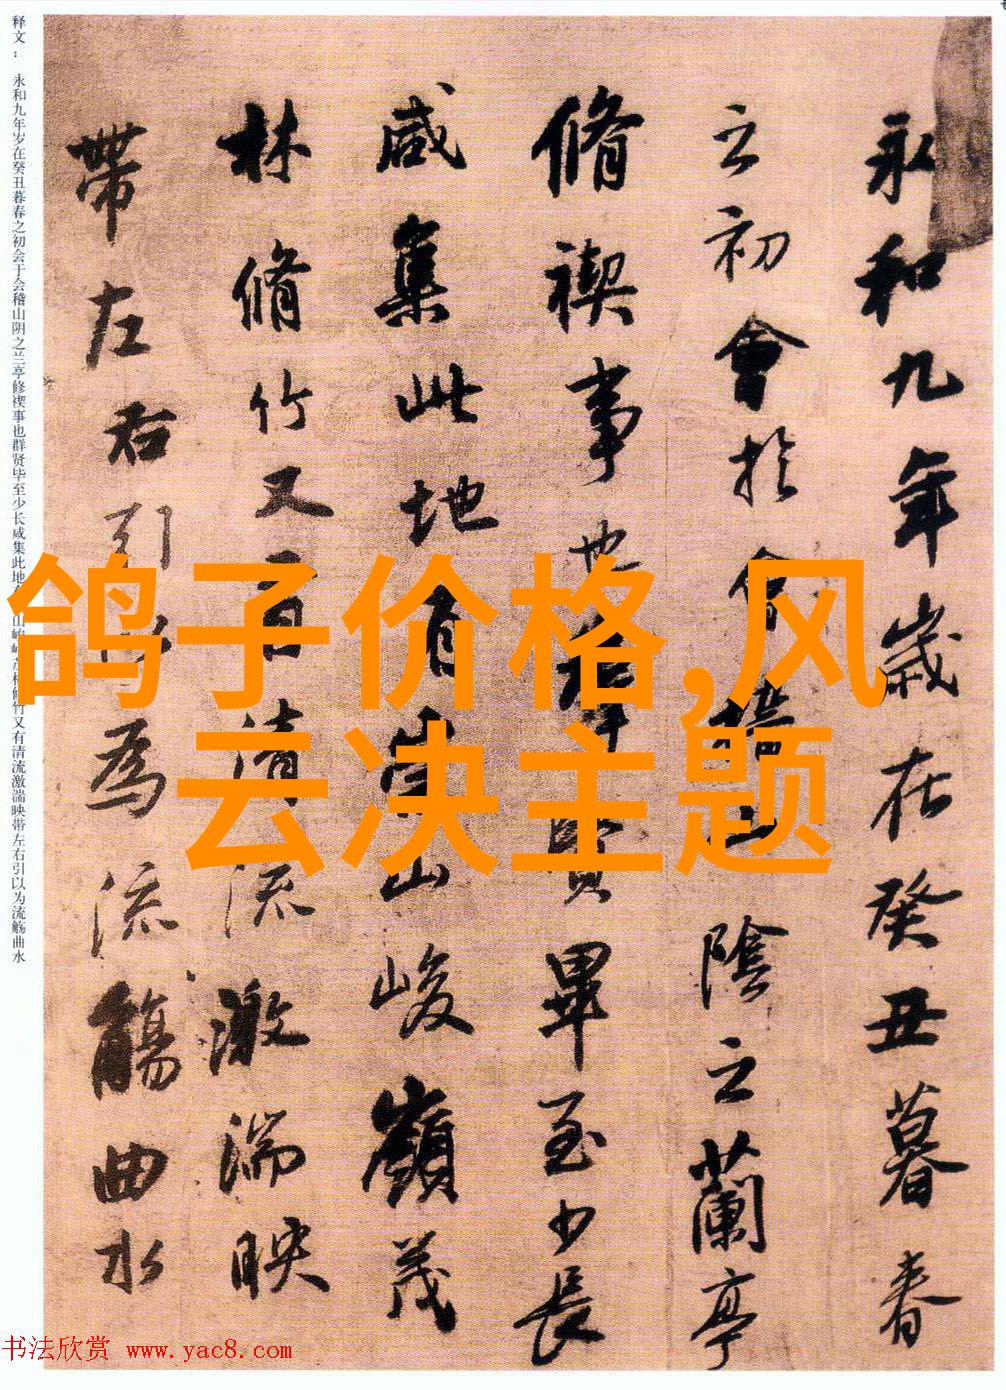 永和九年歲在癸丑暮春
之初會於會稽山陰之蘭亭
脩禊事也羣賢畢至少長
咸集此地有崇山峻嶺茂
林脩竹又有清流激湍映
帶左右引以為流觴曲水
释文： 永和九年岁在癸丑暮春之初会于会稽山阴之兰亭修禊事也群贤毕至少长咸集此地山峻林修竹又有清流激湍映带左右引以为流觞曲水
鸽子价格,风
云决主题
书法欣赏 www.yac8.com